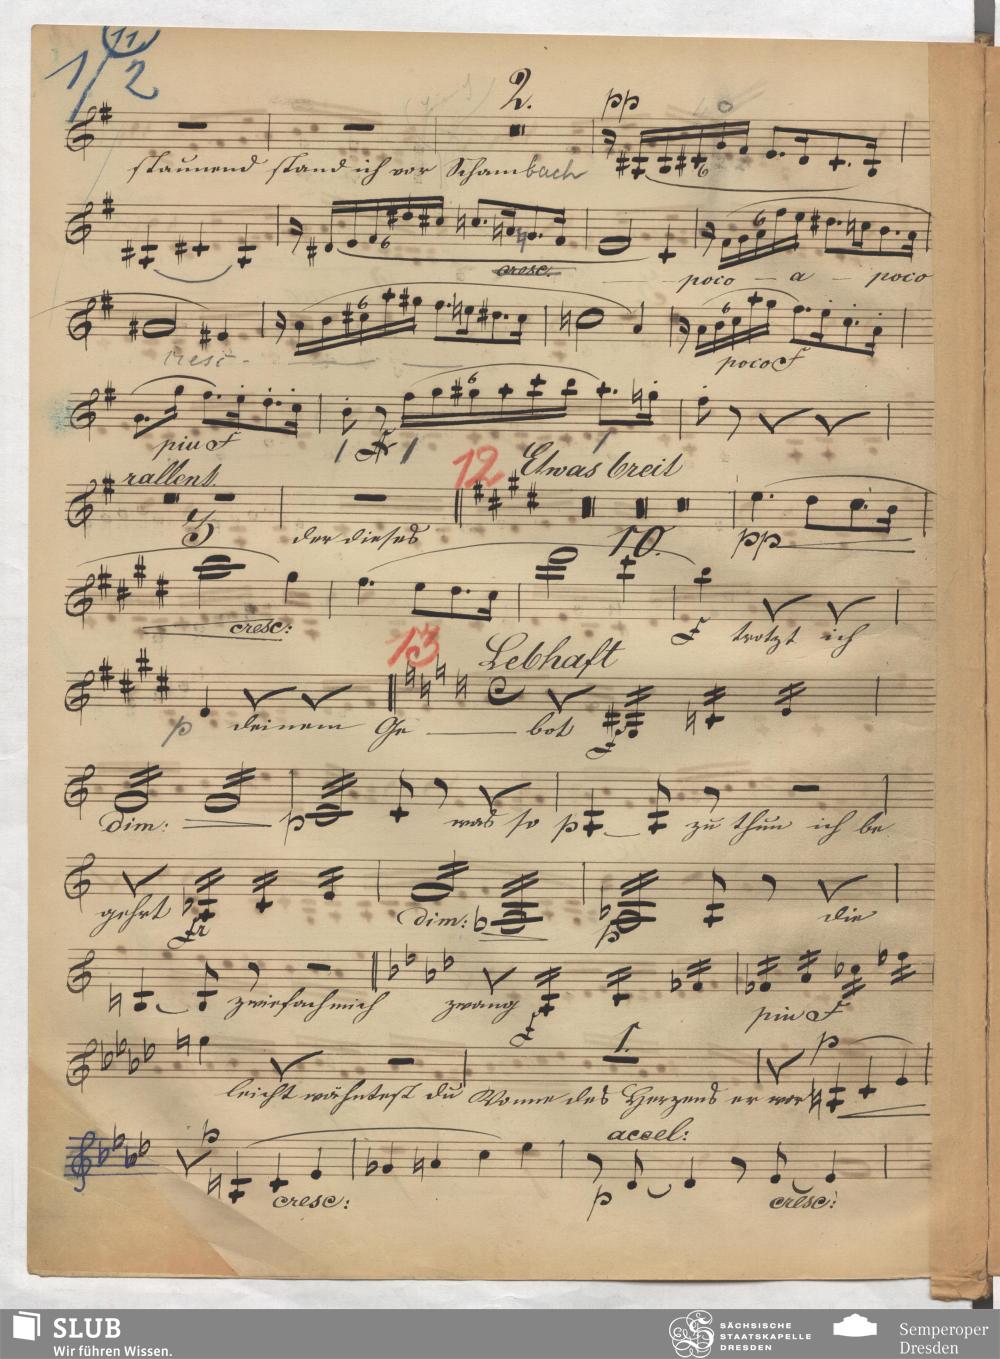 11
1/2
2.
pp
staunend stand ich vor Scham bach
6
6
cresc.
6
poco - a - poco
6
6
cresc -
poco F
6
piu F
1 F 1
rallent.
12
Etwas breit
3
der dieses
10.
pp
cresc:
F trotzt ich
13
Lebhaft
p deinem Ge — bot
F
dim:
p
was so
p
zu thun ich be
gehrt
dim:
p
die
zwiefach mich
zwang
F
piu F
1.
p
leicht wähntest du Wonne des Herzens er
p
accel:
cresc:
p
cresc:
SLUB
Wir führen Wissen.
SÄCHSISCHE
STAATSKAPELLE
DRESDEN
Semperoper
Dresden